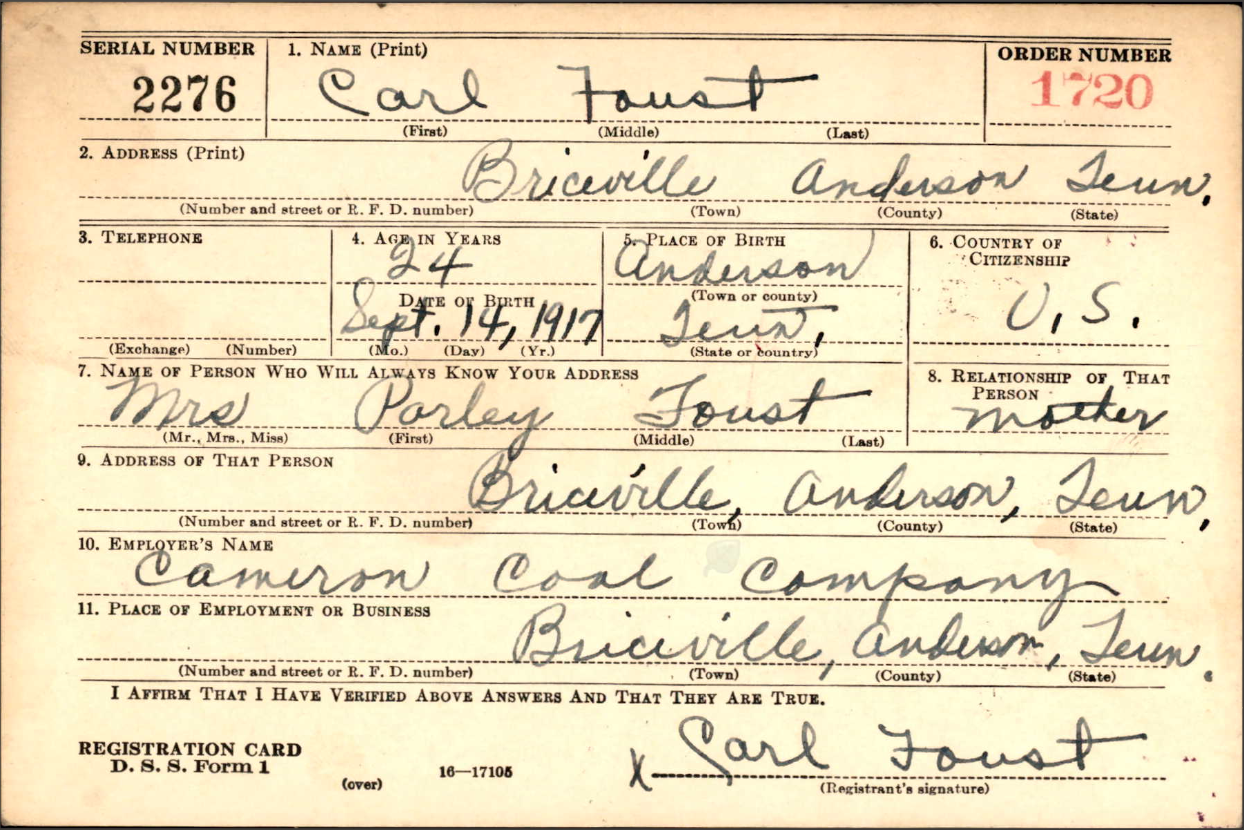 SERIAL NUMBER 1. NAME (Print) ORDER NUMBER
2276 Carl Foust 1720
(First) (Middle) (Last)
2. ADDRESS (Print)
Briceville Anderson Tenn.
(Number and street or R. F. D. number) (Town) (County) (State)
3. TELEPHONE 4. AGE IN YEARS 5. PLACE OF BIRTH 6. COUNTRY OF CITIZENSHIP
24 Anderson
DATE OF BIRTH (Town or county) U. S.
Sept. 14, 1917 Tenn.
(Exchange) (Number) (Mo.) (Day) (Yr.) (State or country)
7. NAME OF PERSON WHO WILL ALWAYS KNOW YOUR ADDRESS 8. RELATIONSHIP OF THAT PERSON
Mrs Parley Foust mother
(Mr., Mrs., Miss) (First) (Middle) (Last)
9. ADDRESS OF THAT PERSON
Briceville, Anderson, Tenn,
(Number and street or R. F. D. number) (Town) (County) (State)
10. EMPLOYER'S NAME
Cameron Coal Company
11. PLACE OF EMPLOYMENT OR BUSINESS
Briceville, Anderson, Tenn.
(Number and street or R. F. D. number) (Town) (County) (State)
I AFFIRM THAT I HAVE VERIFIED ABOVE ANSWERS AND THAT THEY ARE TRUE.
REGISTRATION CARD
D. S. S. Form 1 (over) 16—17105 X Carl Foust
(Registrant's signature)